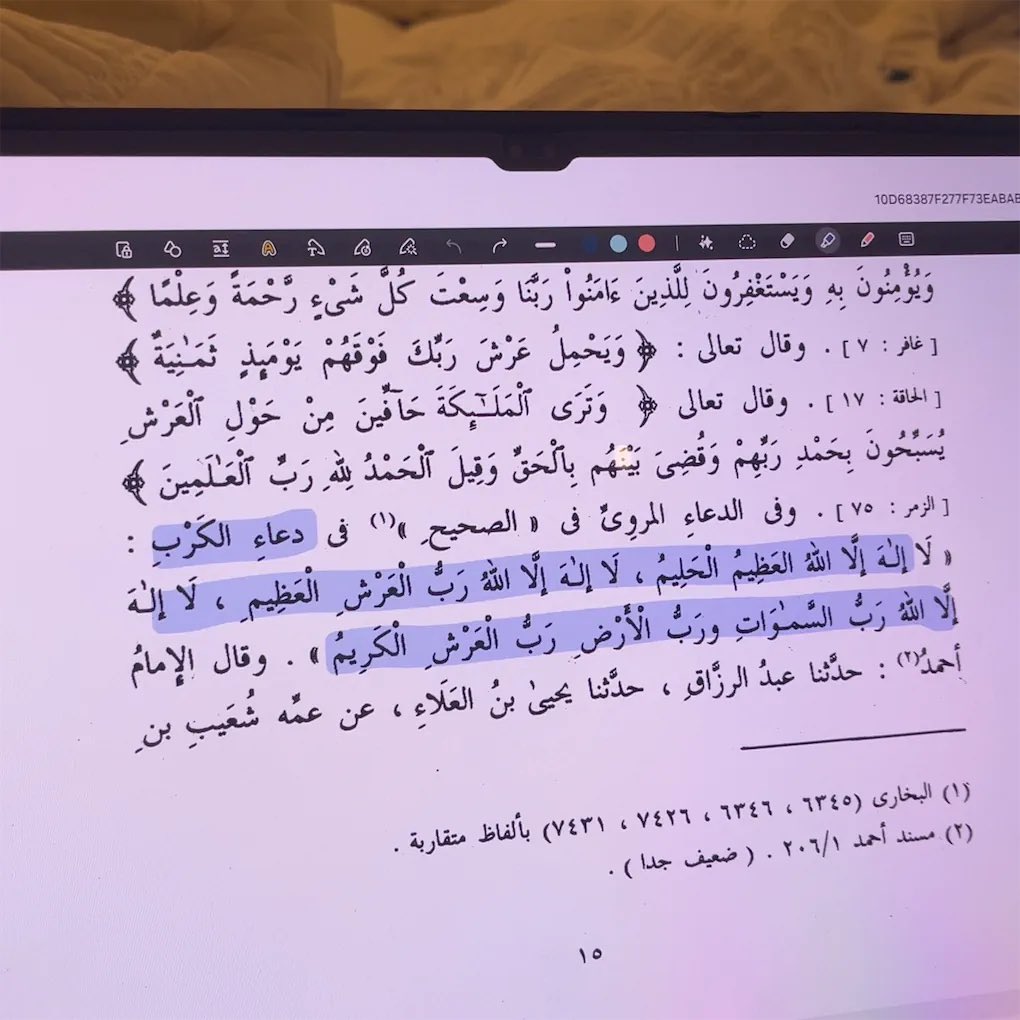 10D68387F277F73EABAB
وَيُؤْمِنُونَ بِهِ وَيَسْتَغْفِرُونَ لِلَّذِينَ ءَامَنُواْ رَبَّنَا وَسِعْتَ كُلَّ شَىْءٍ رَّحْمَةً وَعِلْمًا ﴾
[ غافر : ٧ ] . وقال تعالى : ﴿ وَيَحْمِلُ عَرْشَ رَبِّكَ فَوْقَهُمْ يَوْمَئِذٍ ثَمَٰنِيَةٌ ﴾
[ الحاقة : ١٧ ] . وقال تعالى ﴿ وَتَرَى ٱلْمَلَٰٓئِكَةَ حَآفِّينَ مِنْ حَوْلِ ٱلْعَرْشِ
يُسَبِّحُونَ بِحَمْدِ رَبِّهِمْ وَقُضِىَ بَيْنَهُم بِٱلْحَقِّ وَقِيلَ ٱلْحَمْدُ لِلَّهِ رَبِّ ٱلْعَٰلَمِينَ ﴾
[ الزمر : ٧٥ ] . وفى الدعاءِ المروىِّ فى « الصحيحِ »(١) فى دعاءِ الكَرْبِ :
« لَا إِلَٰهَ إِلَّا اللهُ العَظِيمُ الْحَلِيمُ ، لَا إِلَٰهَ إِلَّا اللهُ رَبُّ الْعَرْشِ الْعَظِيمِ ، لَا إِلَٰهَ
إِلَّا اللهُ رَبُّ السَّمٰوَاتِ ورَبُّ الْأَرْضِ رَبُّ الْعَرْشِ الْكَرِيمُ » . وقال الإِمامُ
أحمدُ(٢) : حدَّثنا عبدُ الرزَّاقِ ، حدَّثنا يحيىٰ بنُ العَلَاءِ ، عن عمِّه شُعَيبِ بنِ
(١) البخارى (٦٣٤٥ ، ٦٣٤٦ ، ٧٤٢٦ ، ٧٤٣١) بألفاظ متقاربة .
(٢) مسند أحمد ٢٠٦/١ . ( ضعيف جدا ) .
١٥